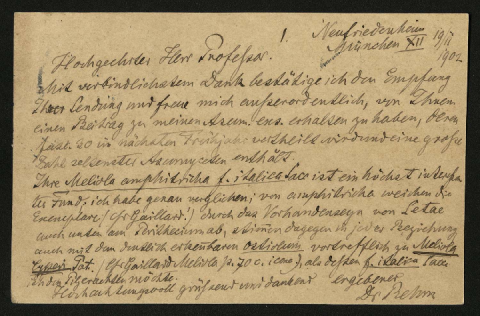 1.
Neufriedenheim
München XII
19/II
1902
Hochgeehrter Herr Professor.
Mit verbindlichstem Dank bestätige ich den Empfang
Ihrer Sendung und freue mich außerordentlich, von Ihnen
einen Beitrag zu meinen Ascom. exs. erhalten zu haben, deren
im nächsten Frühjahr vertheilt wird und eine große
Zahl seltenster Ascomyceten enthält.
Ihre Meliola amphitricha f. italica Sacc ist ein höchst interessan
ter Fund; ich habe genau verglichen; von amphitricha weichen die
Exemplare (cfr Gaillard!) durch das Vorhandenseyn von Setae
auch unten am Perithecium ab, stimmen dagegen in jeder Beziehung
auch mit dem deutlich erkennbaren ostiolum vortrefflich zu Meliola
Pat. (cfr Gaillard Meliola p. 70 c. icone), als dessen f. italica Sacc
ich den Pilz erachten möchte.
Hochachtungsvoll grüßend und dankend ergebener
Dr Rehm